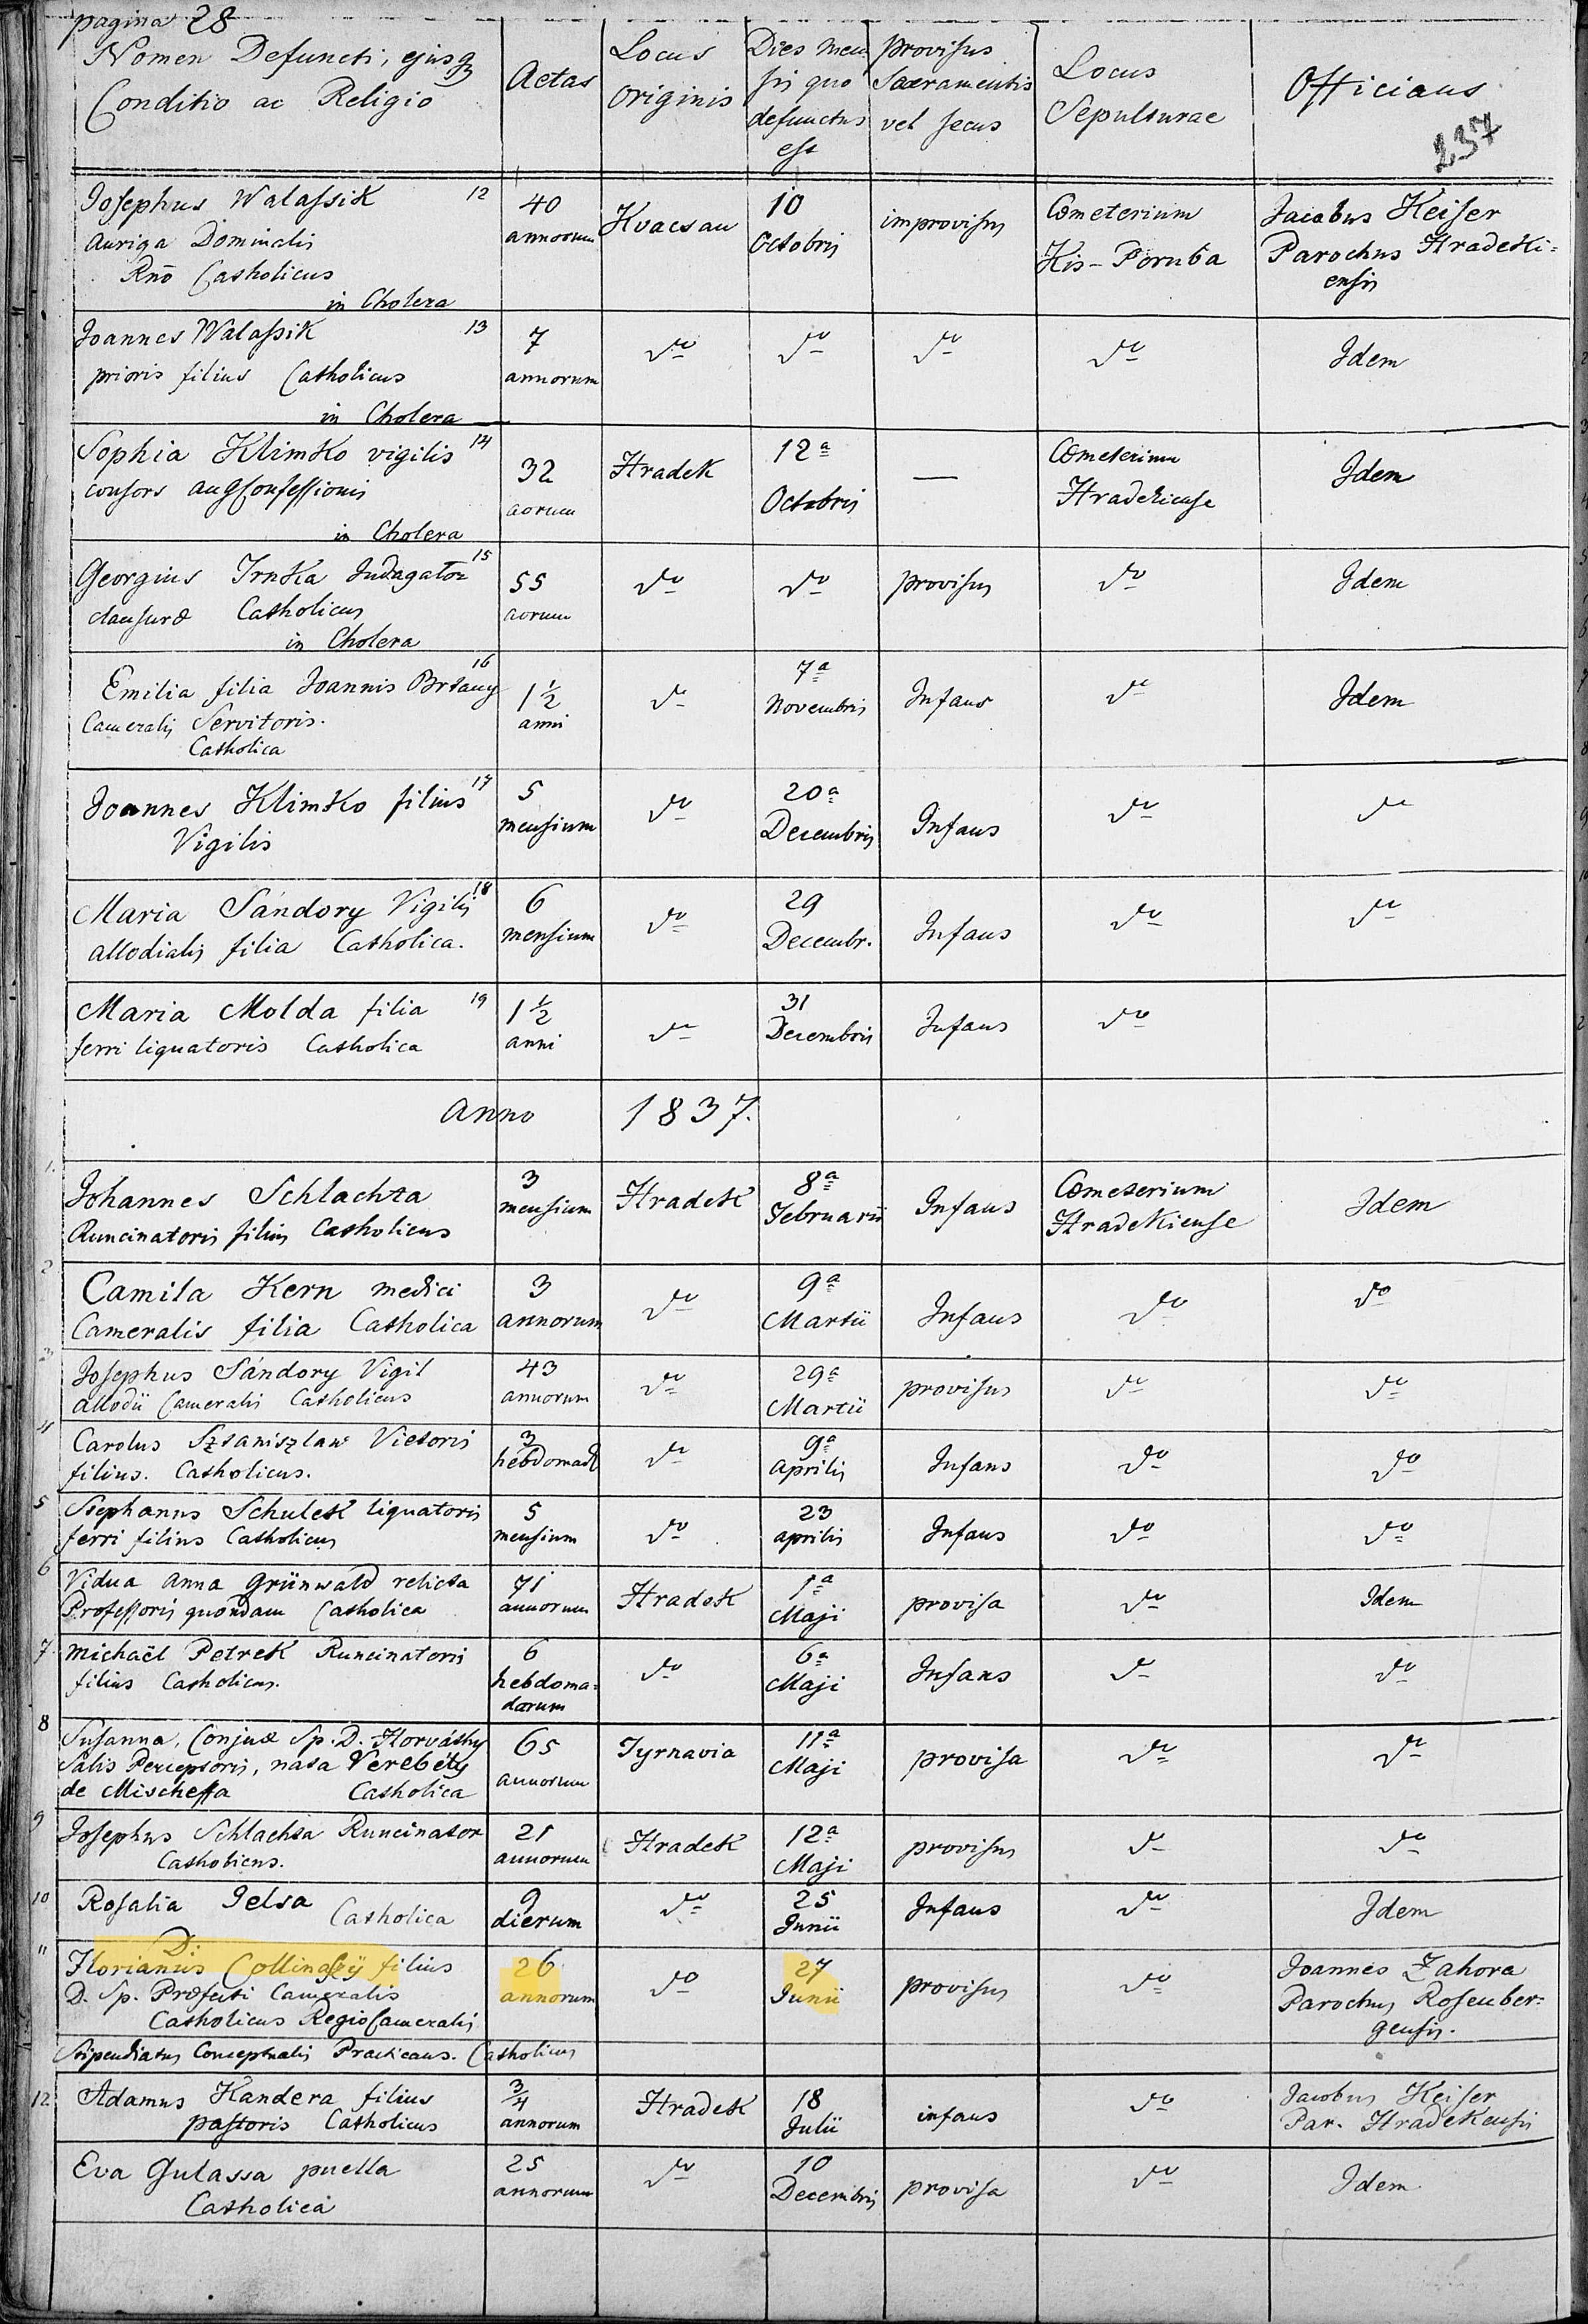 pagina 28
Nomen Defuncti, ejusq
Conditio ac Religio
Aetas
Locus
Originis
Dies men
sis quo
defunctus
est
provisus
Sacramentis
vel secus
Locus
Sepulturae
Officians
237
Josephus Walassik 12
auriga Dominalis
Rno Catholicus
in Cholera
40
annorum
Kvacsan
10
Octobris
improvisus
Cometerium
Kis-Poruba
Jacobus Keiser
Parochus Hradeki-
ensis
Joannes Walassik 13
prioris filius Catholicus
in Cholera
7
annorum
do
do
do
do
Idem
Sophia Klimko vigilis 14
consors augConfessionis
in Cholera
32
aorum
Hradek
12a
Octobris
—
Cometerium
Hradekiense
Idem
Georgius Trnka Indagator 15
clausurae Catholicus
in Cholera
55
aorum
do
do
provisus
do
Idem
16
Emilia filia Joannis Brtany
Cameralis Servitoris.
Catholica
1½
anni
do
7a
Novembris
Infans
do
Idem
Joannes Klimko filius 17
Vigilis
5
mensium
do
20a
Decembris
Infans
do
do
Maria Sándory Vigilis 18
allodialis filia Catholica.
6
mensium
do
29
Decembr.
Infans
do
do
Maria Molda filia 19
ferri liquatoris Catholica
1½
anni
do
31
Decembris
Infans
do
Anno 1837.
1.
Johannes Schlachta
Runcinatoris filius Catholicus
3
mensium
Hradek
8a
Februarii
Infans
Cometerium
Hradekiense
Idem
2
Camila Kern medici
Cameralis filia Catholica
3
annorum
do
9a
Martii
Infans
do
do
3
Josephus Sándory Vigil
allodii Cameralis Catholicus
43
annorum
do
29a
Martii
provisus
do
do
4
Carolus Sztaniszlaw Vietoris
filius. Catholicus.
3
hebdomadae
do
9a
aprilis
Infans
do
do
5
Stephanus Schulek liquatoris
ferri filius Catholicus
5
mensium
do
23
aprilis
Infans
do
do
6
Vidua Anna Grünwald relicta
Professoris quondam Catholica
71
annorum
Hradek
1a
Maji
provisa
do
Idem
7
Michaël Petrek Runcinatoris
filius Catholicus.
6
hebdoma-
darum
do
6a
Maji
Infans
do
do
8
Susanna, Conjux Sp. D. Horváthy
Salis Perceptoris, nata Verebély
de Mischeffa Catholica
65
annorum
Tyrnavia
11a
Maji
provisa
do
do
9
Josephus Schlachta Runcinator
Catholicus.
21
annorum
Hradek
12a
Maji
provisus
do
do
10
Rosalia Jelsa Catholica
9
dierum
do
25
Junii
Infans
do
Idem
11
D.
Florianus Collinaszÿ filius
D. Sp. Praefecti Cameralis
Catholicus Regio Cameralis
Stipendiatus Conceptualis Practicans. Catholicus
26
annorum
do
27
Junii
provisus
do
Joannes Zahora
Parochus Rosenber-
gensis.
12
Adamus Kandera filius
pastoris Catholicus
3/4
annorum
Hradek
18
Julii
infans
do
Jacobus Keiser
Par. Hradekensis
Eva Gulassa puella
Catholica
25
annorum
do
10
Decembris
provisa
do
Idem